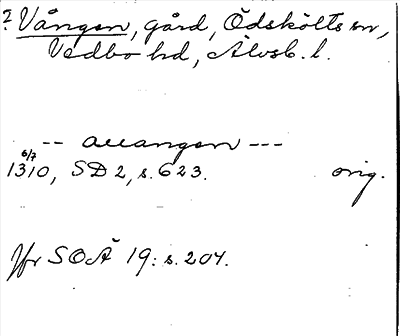 ? Vången, gård, Ödskölts sn,
Vedbo hd, Älvsb. l.
-- auangen ---
6/7
1310, SD 2, s. 623. orig.
Jfr SOÄ 19: s. 204.